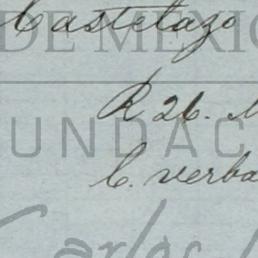 Castelazo
DE MEXIC
R 26.
UNDAC
C. verba
Carlos